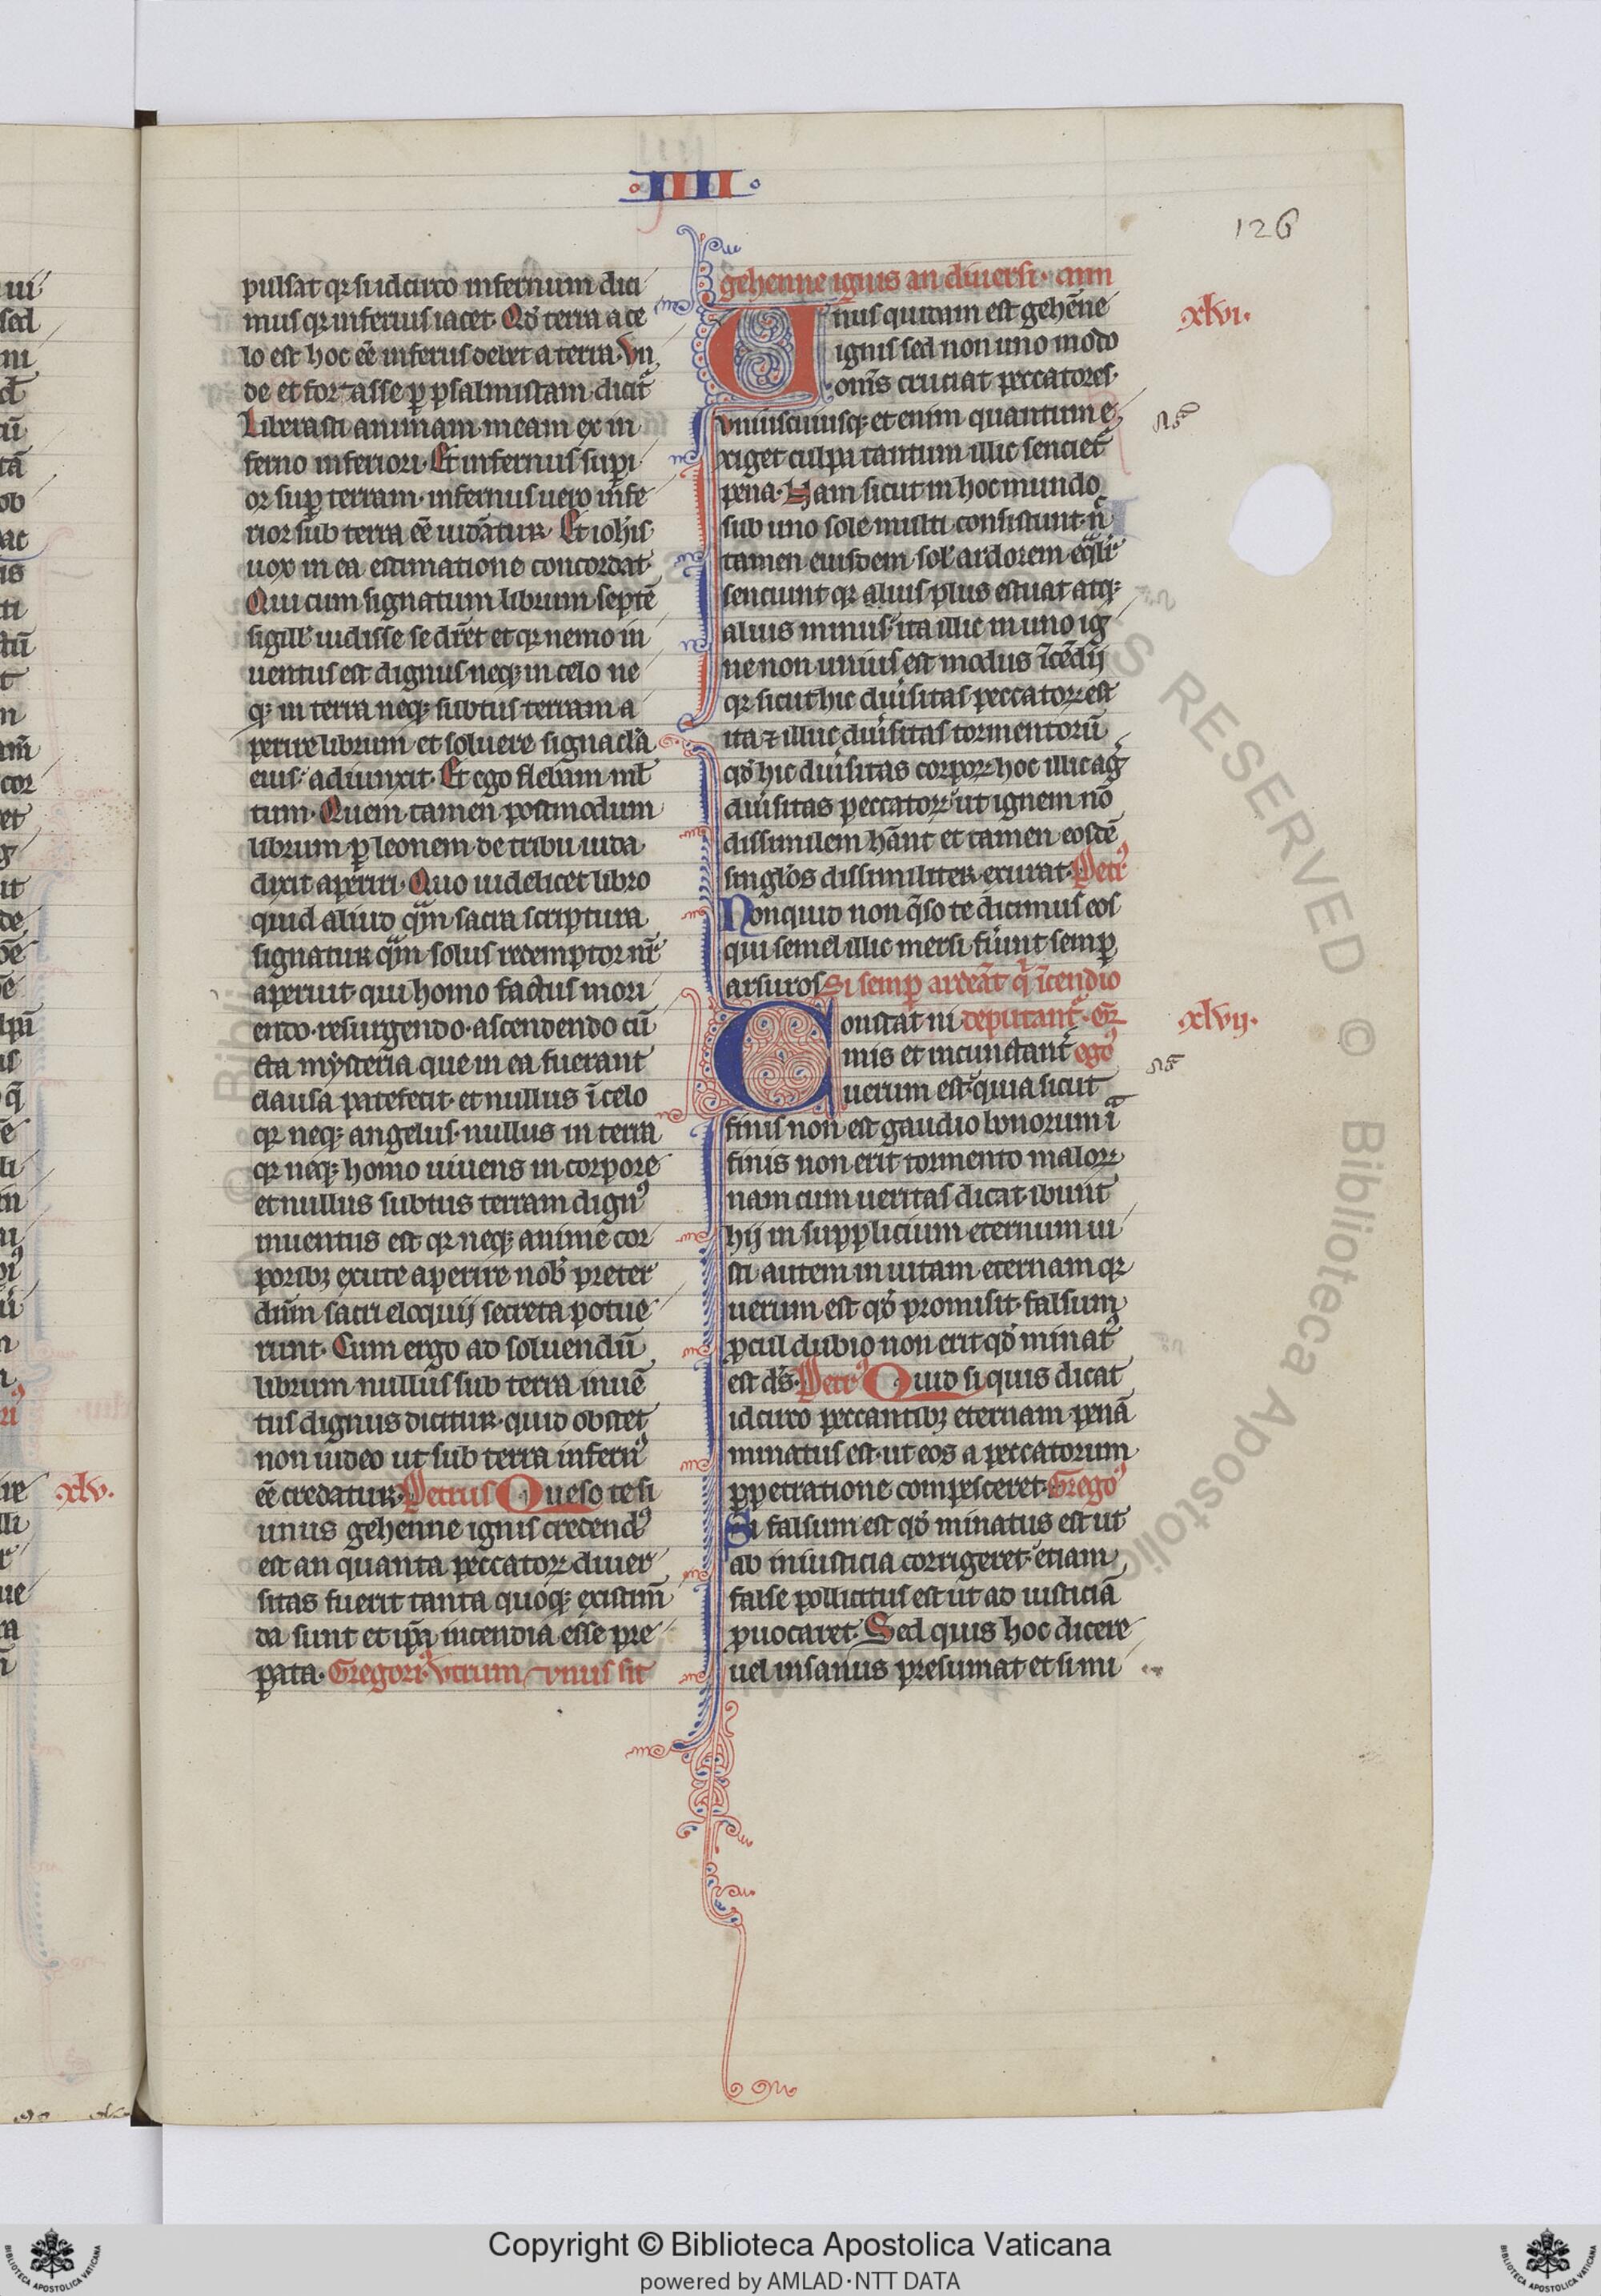 IIII
126
pulsat qr si idcirco infernum dici
mus qr inferius iacet. Qd̕ terra a ce
lo est hoc ee̅ inferus debet a terra. Vn
de et fortasse ꝑ psalmistam dicit᷑
Liberasti animam meam ex in
ferno inferiori. Et infernus supi̕
or suꝑ terram. infernus uero infe
rior sub terra ee̅ uidea̅tur. Et ioh̅is
uox in ea estimatione concordat.
Qui cum signatum librum septe̅
sigill̕ uidisse se dic̅et et qr nemo in
uentus est dignus neqꝫ in celo ne
qꝫ in terra neqꝫ subtus terram a
perire librum et soluere signacl̕a
eius. adiunxit. Et ego flebam ml̕
tum. Quem tamen postmodum
librum ꝑ leonem de tribu iuda
dixit aperiri. Quo uidelicet libro
quid aliud qᷓm sacra scriptura
signatur qᷓm solus redemptor nr̅
aperuit qui homo factus mori
endo. resurgendo. ascendendo cu̅
cta mysteria que in ea fuerant
clausa patefecit. et nullus i̅ celo
qr neqꝫ angelus. nullus in terra
qr neqꝫ homo uiuens in corpore
et nullus subtus terram dignꝰ
inuentus est qr neqꝫ anime cor
poribꝫ exute aperire nob̕ preter
dn̅m sacri eloquij secreta potue
runt. Cum ergo ad soluendu̅
librum nullus sub terra inue̅
tus dignus dicitur. quid obstet
non uideo ut sub terra infernꝰ
ee̅ credatur. Petrus Queso te si
unus gehenne ignis credendꝰ
est an quanta peccatoꝝ diuer
sitas fuerit tanta quoqꝫ existim̅
da sunt et ip̅a incendia esse pre
ꝑata. Gregoriꝰ. Vtrum vnus sit
gehenne ignis an diuersi.
xlvi.
Unus quidam est gehe̅ne
ignis sed non uno modo
om̅s cruciat peccatores.
vniuscuiusqꝫ et enim quantum e
xiget culpa tantum illic senciet᷑
pena. Nam sicut in hoc mundo
sub uno sole multi consistunt. n̅
tamen eiusdem sol̕ ardorem eq̕lit᷑
senciunt qr alius plus estuat atqꝫ
alius minus. ita illic in uno ig
ne non unius est modus i̅ce̅dij
qr sicut hic diu̕sitas peccatoꝝ est
ita ⁊ illuc diu̕sitas tormentoru̅
qd̕ hic diu̕sitas corpoꝝ hoc illic ag̅
diu̕sitas peccatoꝝ ut ignem no̅
dissimilem ha̅nt et tamen eosde̅
singl̕os dissimiliter exurat. Petrꝰ
Nonquid non q̅so te dicimus eos
qui semel illic mersi fu̕unt semꝑ
arsuros Si semꝑ ardea̅t qͥ i̅cendio
xlvij.
Constat ni deputant᷑. Gr
mis et incunctant᷑ egoꝰ
uerum est. quia sicut
finis non est gaudio bonorum i̅
finis non erit tormento maloꝝ
nam cum ueritas dicat ibunt
hij in supplicium eternum iu
sti autem in uitam eternam qr
uerum est qd̕ promisit. falsum
ꝓcul dubio non erit qd̕ minatꝰ
est ds̅. Petrꝰ Quid si quis dicat
idcirco peccantibꝫ eternam pena̅
minatus est. ut eos a peccatorum
ꝑpetratione compesceret. Gregoꝰ
Si falsum est qd̕ minatus est ut
ab iniusticia corrigeret. etiam
false pollicitus est ut ad iusticia̅
ꝓuocaret. Sed quis hoc dicere
uel insanus presumat et si mi
xlv.
© Biblioteca Apostolica
RESERVED © Biblioteca Apostolica
Copyright © Biblioteca Apostolica Vaticana
powered by AMLAD·NTT DATA
BIBLIOTECA APOSTOLICA VATICANA
BIBLIOTECA APOSTOLICA VATICANA